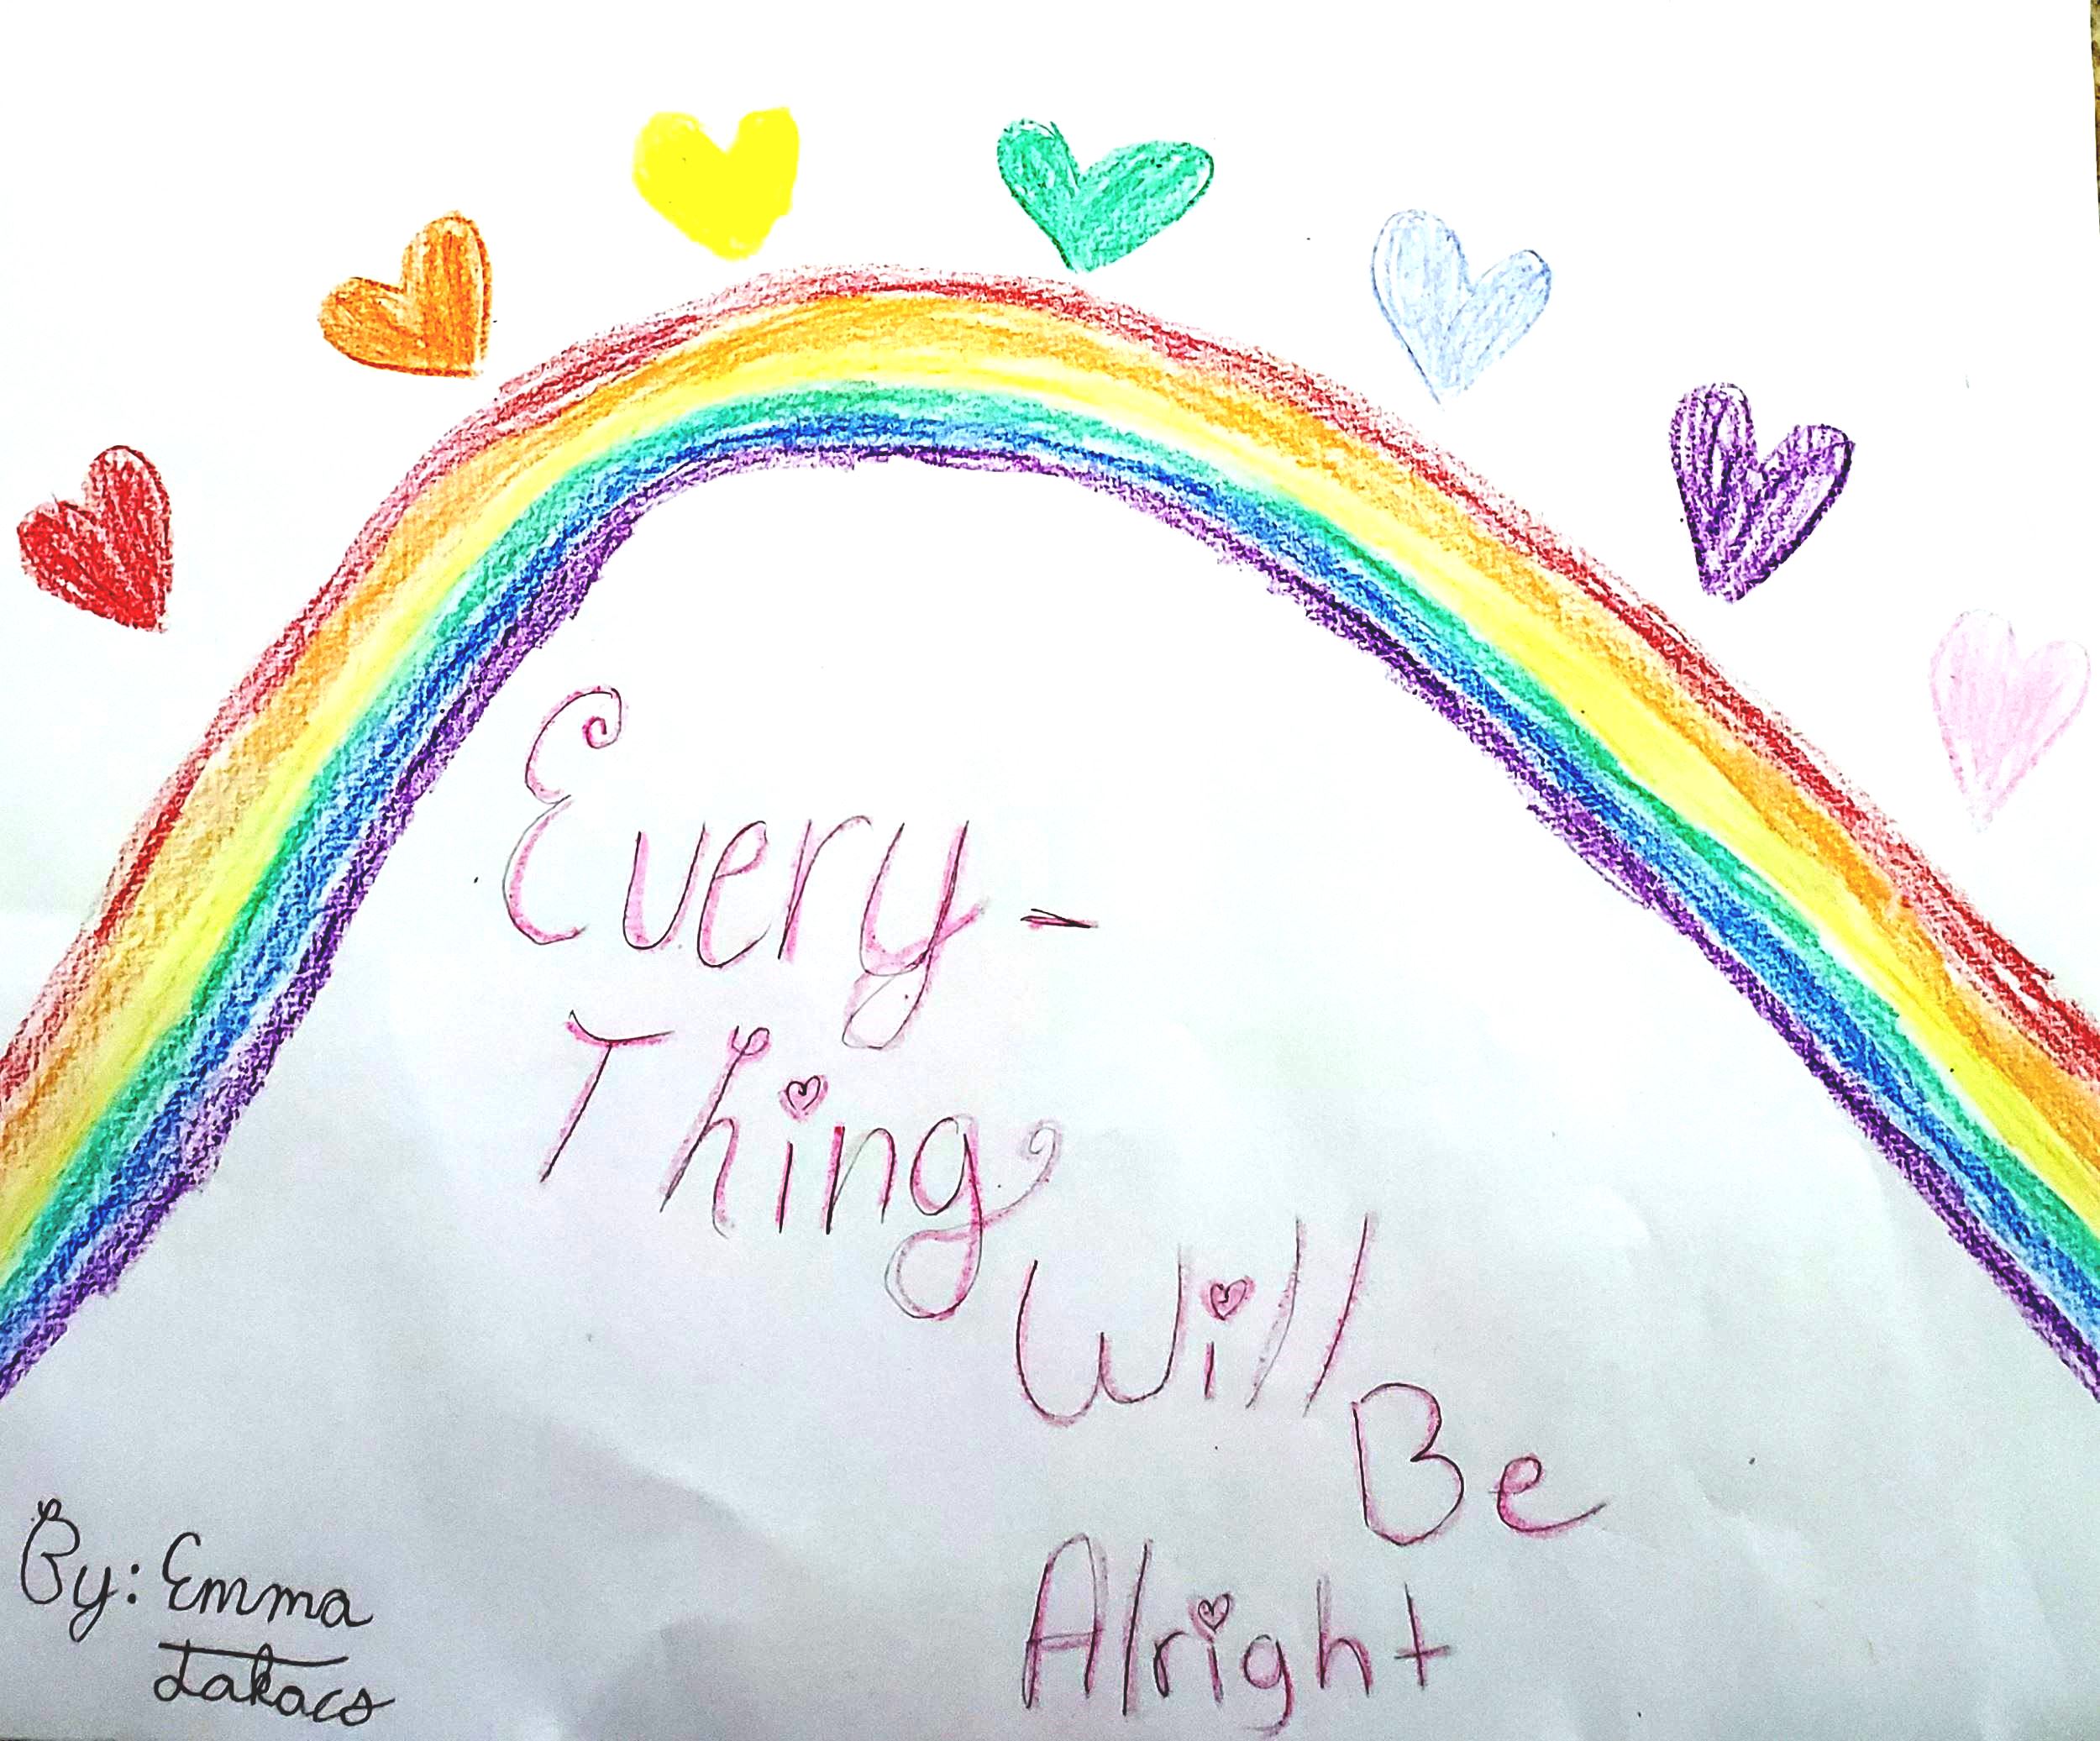 Every-
Thing
Will
Be
Alright
By: Emma
Takacs